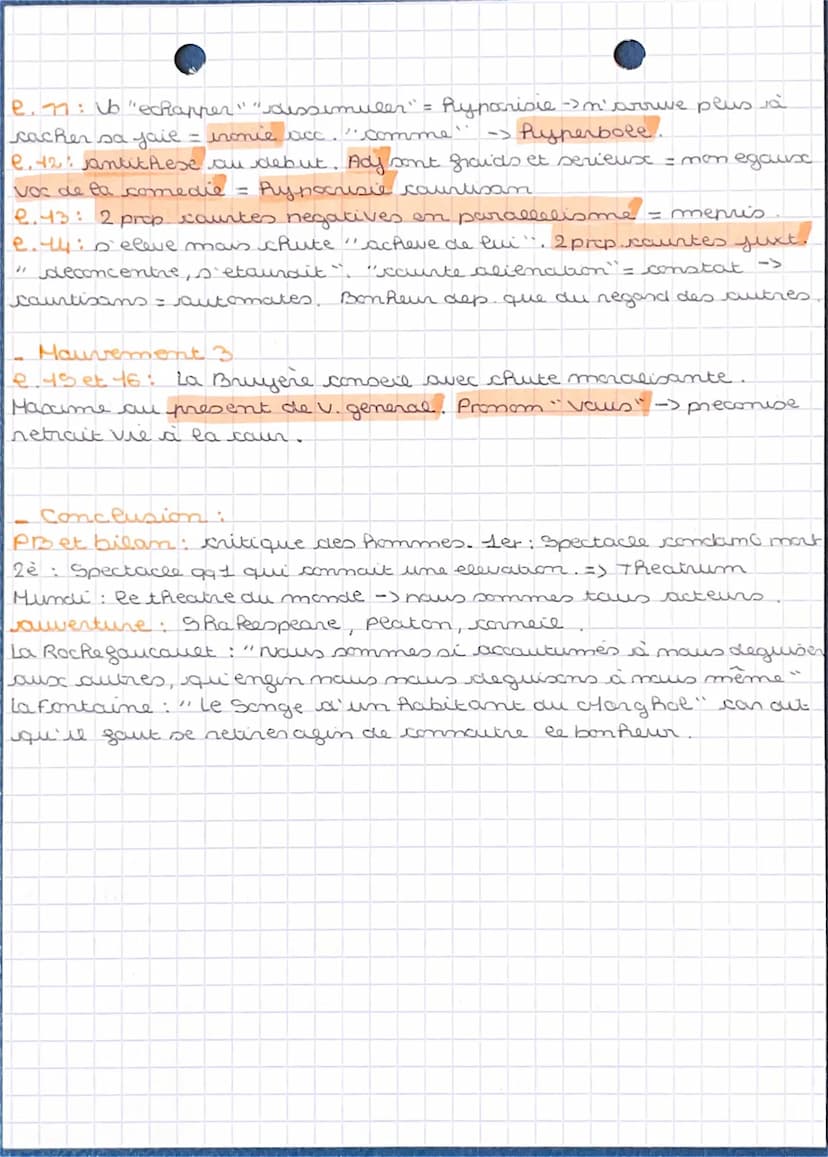 l.11: Vb "echapper" "dissimuler" = Hypocrisie -> n'arrive plus à
cacher sa joie = ironie acc. "comme" -> Hyperbole.
l.12: antithese au debut. Adj sont froids et serieux = non egaux
voc de la comedie = Hypocrisie courtisan
l.13: 2 prop courtes negatives en parallelisme = mepris.
l.14: s'eleve mais chute "acheve de lui". 2 prop courtes juxt.
" deconcentre, s'etourdit". "courte alienation" = constat ->
courtisans = automates. Bonheur dep. que du regard des autres.
- Mouvement 3
l.15 et 16: La Bruyère conseil avec chute moralisante.
Maxime au present de v. general. Pronom "Vous" -> preconise
retrait vie à la cour.
- Conclusion :
PB et bilan: critique des hommes. 1er: Spectacle condamé mort
2è : Spectacle qq1 qui connait une elevation. => Theatrum
Mundi : le theatre du monde -> nous sommes tous acteurs.
ouverture : Shakespeare, Platon, corneil.
La Rochefoucault : "Nous sommes si accoutumés à nous deguiser
aux autres, qu'enfin nous nous deguisons à nous même"
La Fontaine : "Le Songe d'un habitant du Monghol" car dit
qu'il faut se retirer afin de connaitre le bonheur.